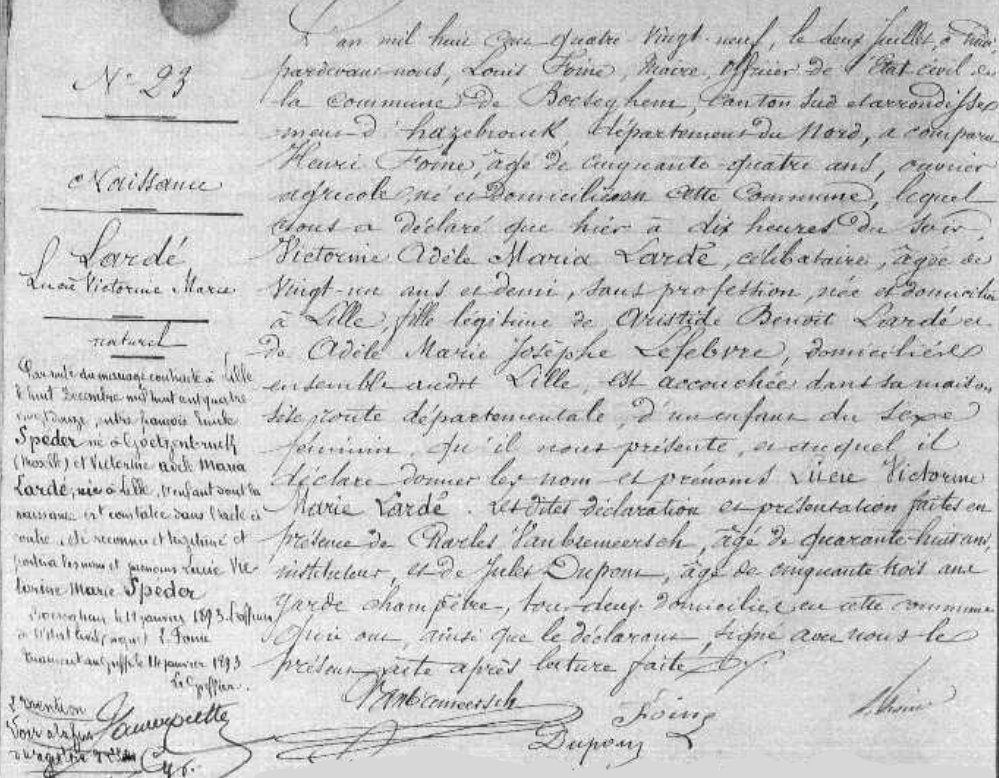 N° 23
Naissance
Lardé
Lucie Victorine Marie
naturel
Par suite du mariage contracté à Lille
le huit Décembre mil huit cent quatre
vingt douze, entre françois Emile
Speder né à Goetzenbruck
(Moselle) et Victorine adèle Maria
Lardé, née à Lille, l'enfant dont la
naissance est constatée dans l'acte ci
contre, a été reconnu et légitimé et
portera les nom et prénoms Lucie Vic-
torine Marie Speder
le 11 janvier 1893. L'officier
de l'état civil, (signé) L. Foine
Transcrit au Greffe le 14 janvier 1893
Le Greffier.
2e mention
Voir à la fin
du registre
L'an mil huit cent quatre vingt-neuf, le deux Juillet, à midi
pardevant nous, Louis Foine, Maire, officier de l'Etat civil de
la commune de Boeseghem, canton sud et arrondisse
ment d'hazebrouck, département du Nord, a comparu
Henri Foine, âgé de cinquante-quatre ans, ouvrier
agricole né et domicilié en cette Commune, lequel
nous a déclaré que hier à dix heures du soir,
Victorine Adèle Maria Lardé, célibataire, âgée de
vingt-un ans et demi, sans profession, née et domiciliée
à Lille, fille légitime de Aristide Benoit Lardé et
de Adèle Marie Josèphe Lefebvre, domiciliés
ensemble audit Lille, est accouchée dans sa maison
sise route départementale, d'un enfant du sexe
féminin, qu'il nous présente, et auquel il
déclare donner les nom et prénoms Lucie Victorine
Marie Lardé. Lesdites déclaration et présentation faites en
présence de Charles Vanbremeersch, âgé de quarante-huit ans,
instituteur, et de Jules Dupont, âgé de cinquante trois ans
garde champêtre, tous deux domiciliés en cette commune
Qui ont, ainsi que le déclarant, signé avec nous le
présent acte après lecture faite
Vanbremeersch
Foine
Dupont